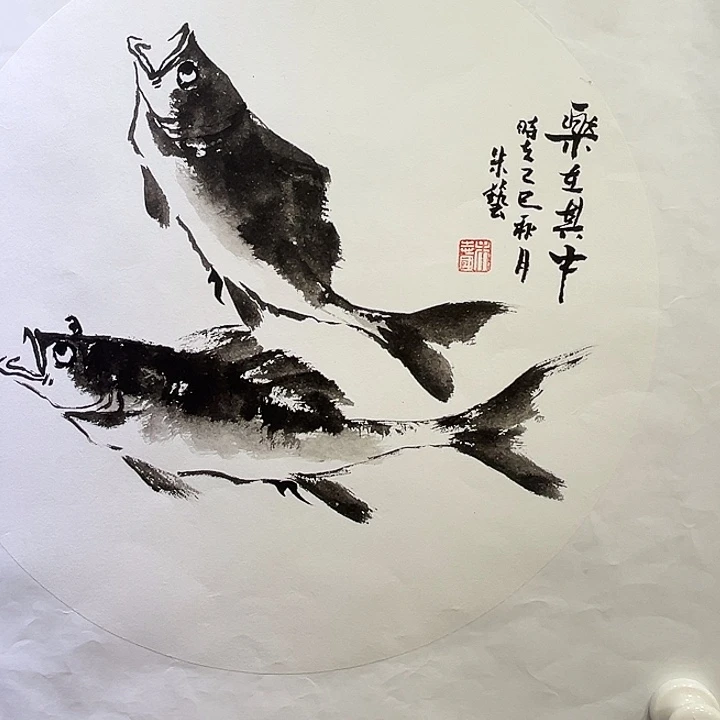 樂在其中
時在乙巳秋月
朱藝